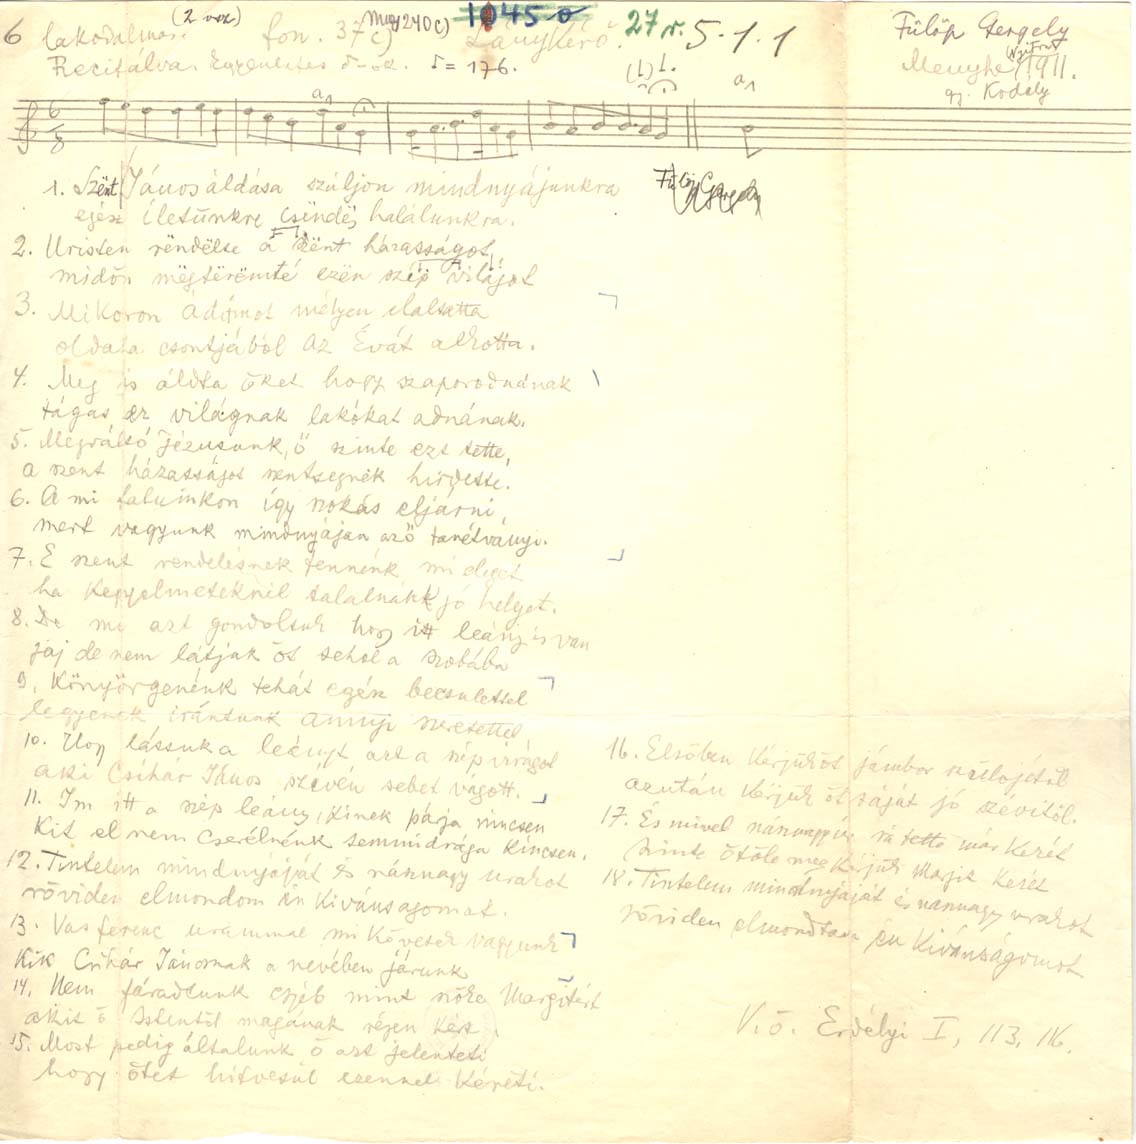 6 lakodalmas. (2 vsz) fon. 37c) Mny 240c) 1045 Lánykérő. 27 r. 5.1.1
Fülöp Gergely
Recitálva. Egyenletes ♪= 176.
Menyhe (Nyitra) 1911.
gy. Kodály
1. Szent János áldása szúljon mindnyájunkra
egész életünkre csendes halálunkra.
Fülöp Gergely
2. Uristen rëndëlse a szënt házasságot,
midőn mëgtërëmté ezën szép világot
3. Mikoron Ádámot mélyen elaltatta
oldala csontjából az Évát alkotta.
4. Meg is áldta őket hogy szaporodnának
tágas ez világnak lakókat adnának.
5. Megváltó Jézusunk, ő szinte ezt tette,
a szent házasságot szentsegnek hirdette.
6. A mi faluinkon így szokás eljárni,
mert vagyunk mindnyájan az ő tanétványi.
7. E szent rendelésnek tennénk mi eleget
ha kegyelmeteknél talalnánk jó helyet.
8. De mi azt gondoltuk hogy itt leány is van
jaj de nem látjuk őt sehol a szobába
9. Könyörgenénk tehát egész becsulettel
legyenek irántunk annyi szeretettel
10. Hogy lássuk a leányt azt a szép virágot
aki Csihár János szívén sebet vágott.
11. Im itt a szép leány, kinek párja nincsen
kit el nem cserélnénk semmi drága kincsen.
12. Tisztelem mindnyáját és násznagy urakot
röviden elmondom én kivánságomat.
13. Vas ferenc urammal mi követek vagyunk
kik Csihár Jánosnak a nevében járunk
14. Nem fáradtunk egyéb mint szőke Margitért
akit ő Istentől magának régen kért.
15. Most pedig általunk ő azt jelenteti
hogy őtet hitvesül ezennel kéreti.
16. Elsőben kérjük őt jámbor szülőjétől
azután kérjük őt saját jó szévitől.
17. És mivel násznagy úr rá tette már kezét
szinte őtőle meg kérjük Margit kezét
18. Tisztelem mindnyáját és násznagy urakot
röviden elmondtam én kivánságomot
V.ö. Erdélyi I, 113, 116.